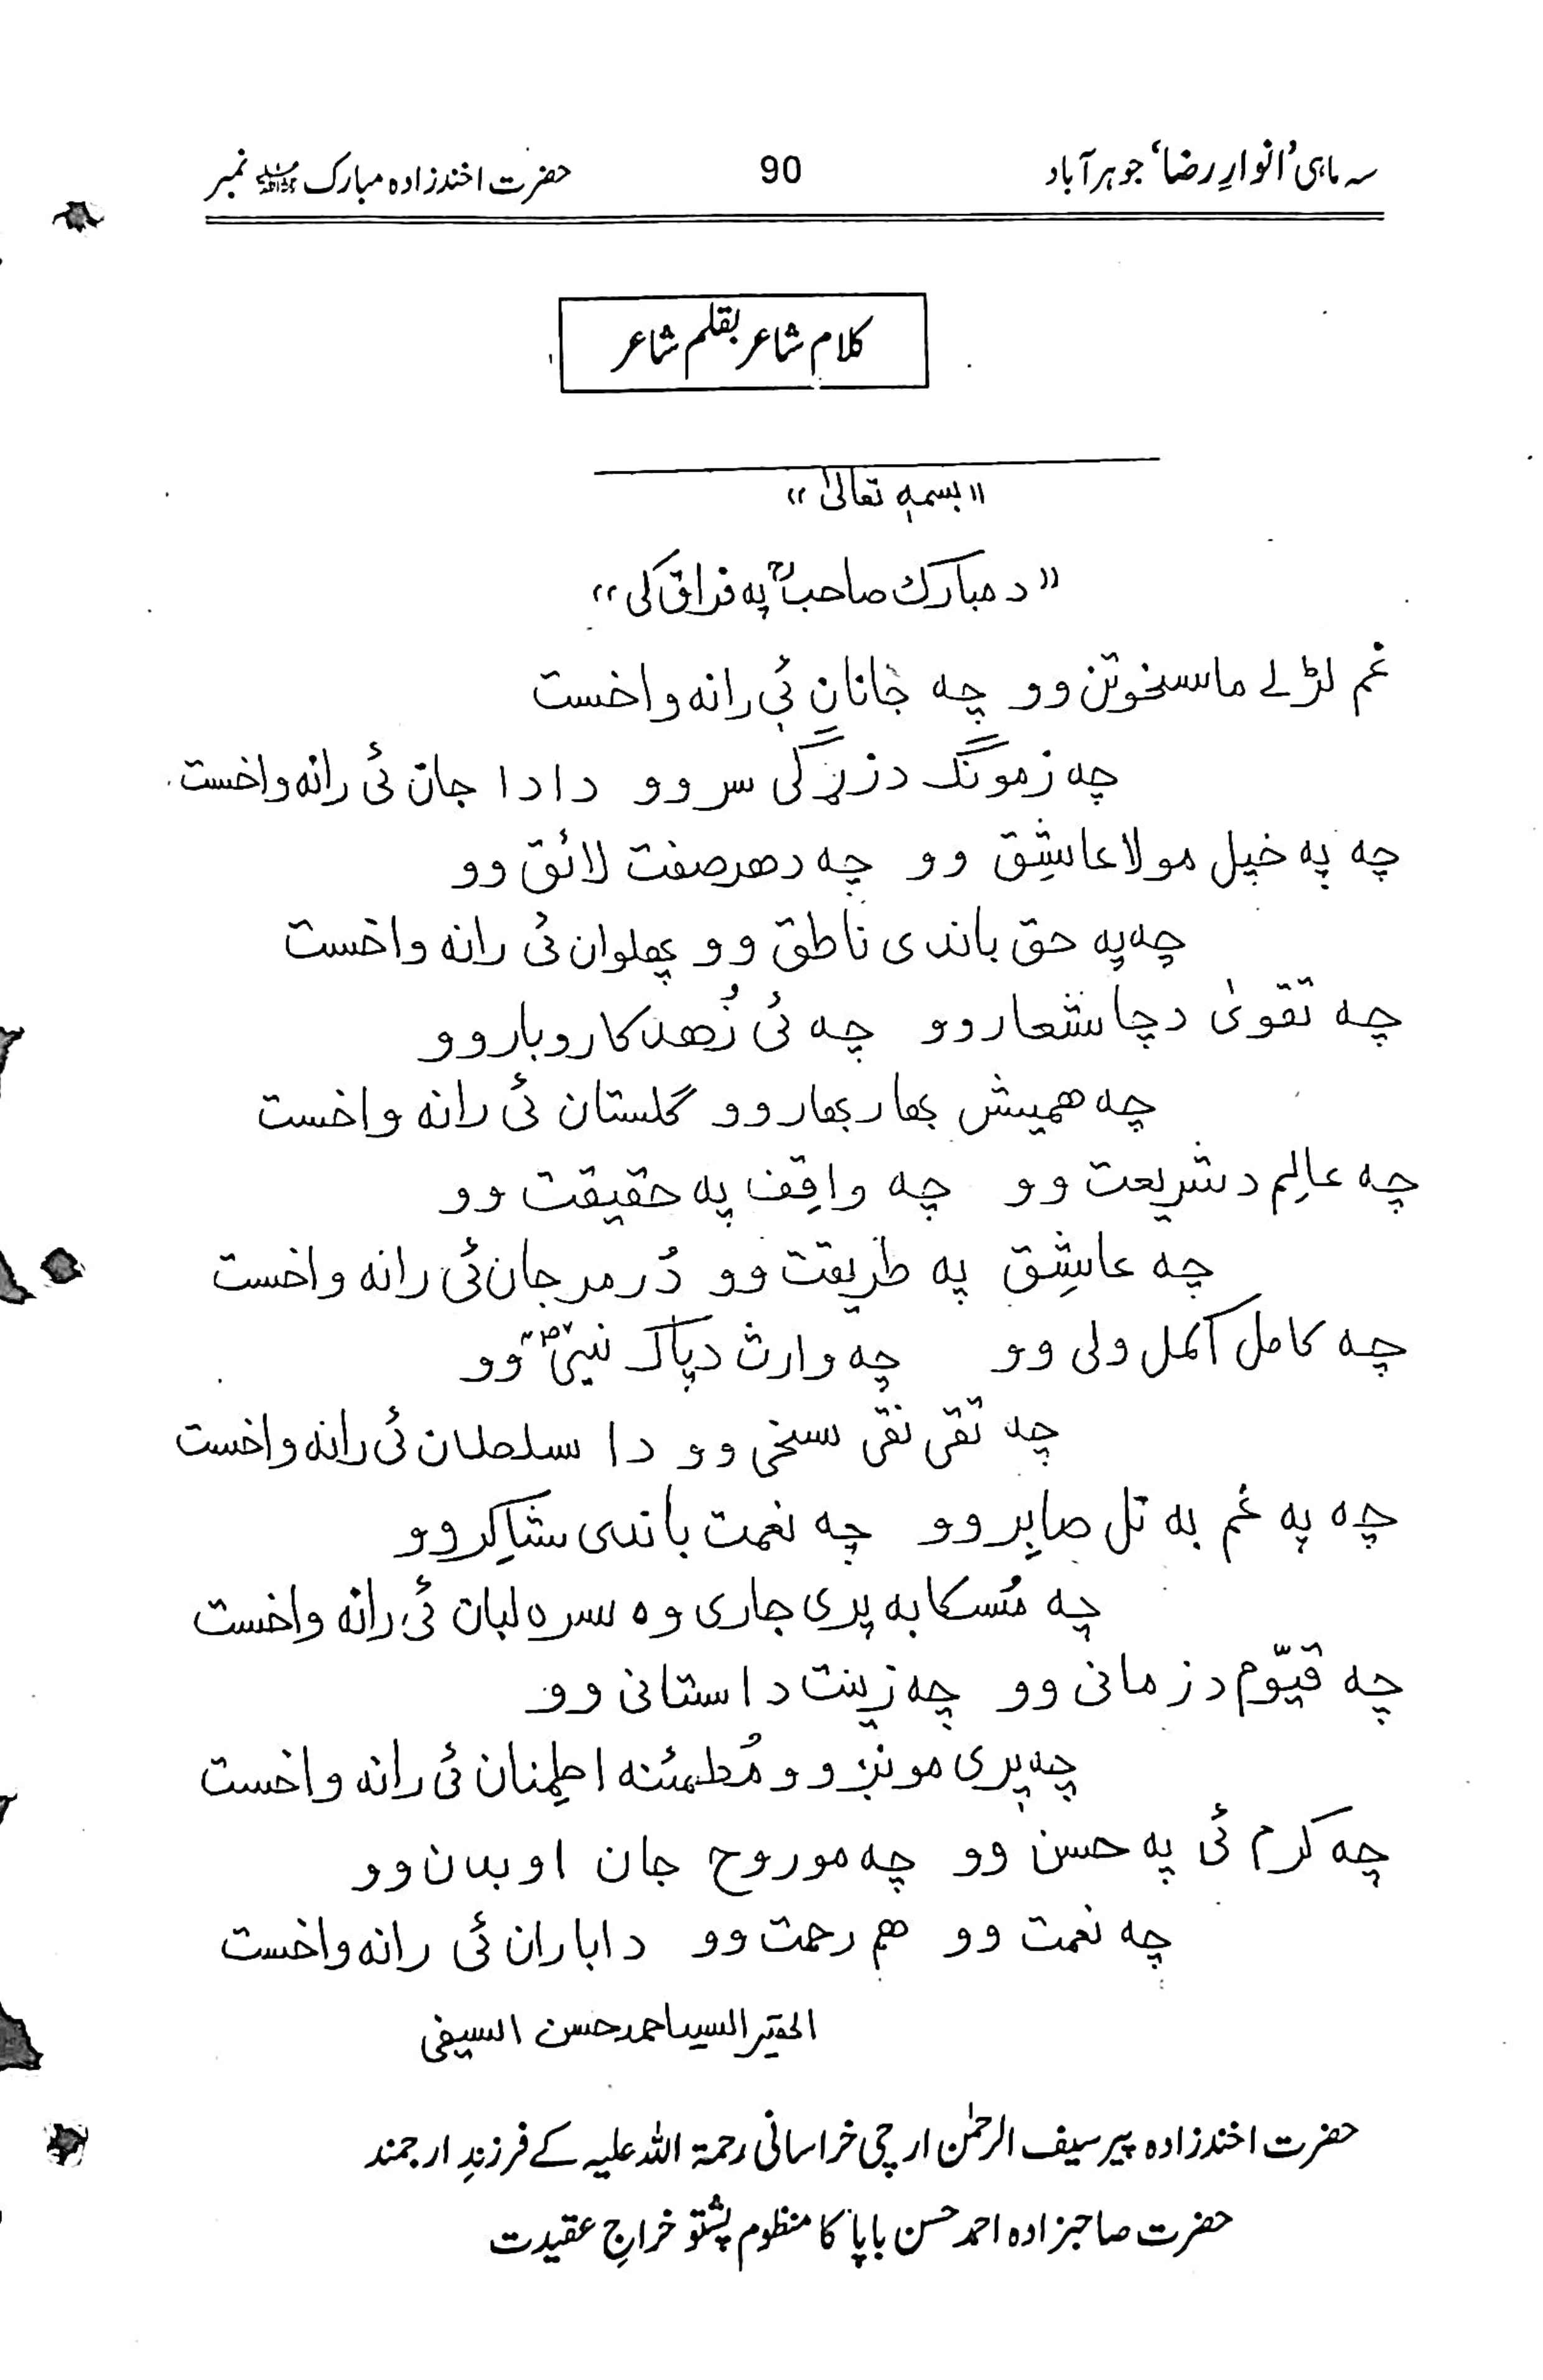 سہ ماہی ’انوارِ رضا‘ جوہر آباد 90 حضرت اخندزادہ مبارک نمبر
کلام شاعر بقلم شاعر
"بسمہٖ تعالیٰ"
"د مبارک صاحبؒ په فراق کی"
غم لړلے ماسخوتن وو چه جانان ئی رانه واخست
چه زمونگ د زړگی سر وو دادا جان ئی رانه واخست
چه په خپل مولا عاشِق وو چه د هر صفت لائق وو
چه په حق باندی ناطق وو پهلوان ئی رانه واخست
چه تقویٰ د چا شعار وو چه ئی زُهد کاروبار وو
چه همیش بهار بهار وو گلستان ئی رانه واخست
چه عالِم د شریعت وو چه واقِف په حقیقت وو
چه عاشِق په طریقت وو دُر مرجان ئی رانه واخست
چه کامل اکمل ولی وو چه وارث د پاک نبیؐ وو
چه تقی نقی سخی وو دا سلطان ئی رانه واخست
چه په غم به تل صابِر وو چه نعمت باندی شاکِر وو
چه مُسکا به پری جاری وه سره لبان ئی رانه واخست
چه قیّوم د زمانی وو چه زینت د استانی وو
چه پری مونږ وو مُطمئنه اطمِنان ئی رانه واخست
چه کرم ئی په حسن وو چه مو روح جان او بدن وو
چه نعمت وو هم رحمت وو دا باران ئی رانه واخست
الحقیر السید احمد حسن السیفی
حضرت اخندزادہ پیر سیف الرحمٰن ارچی خراسانی رحمۃ اللہ علیہ کے فرزندِ ارجمند
حضرت صاحبزادہ احمد حسن باپا کا منظوم پشتو خراجِ عقیدت